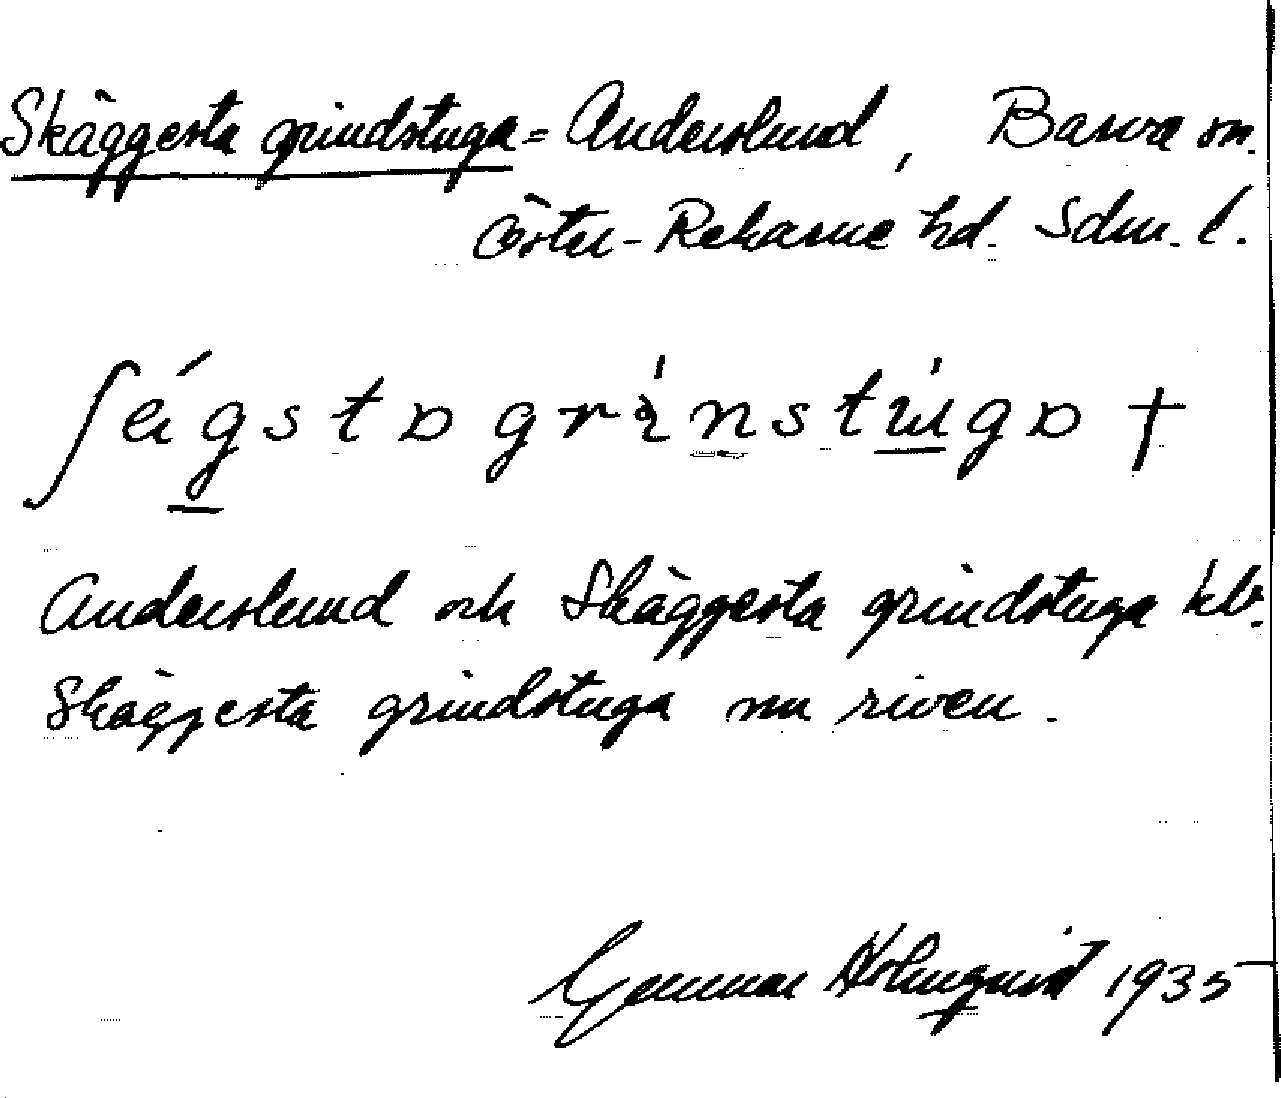 Skäggesta grindstuga = Anderslund, Barva sn.
Öster-Rekarne hd. Sdm. l.
Anderslund och Skäggesta grindstuga
Skäggesta grindstuga nu riven.
Gunnar Holmquist 1935